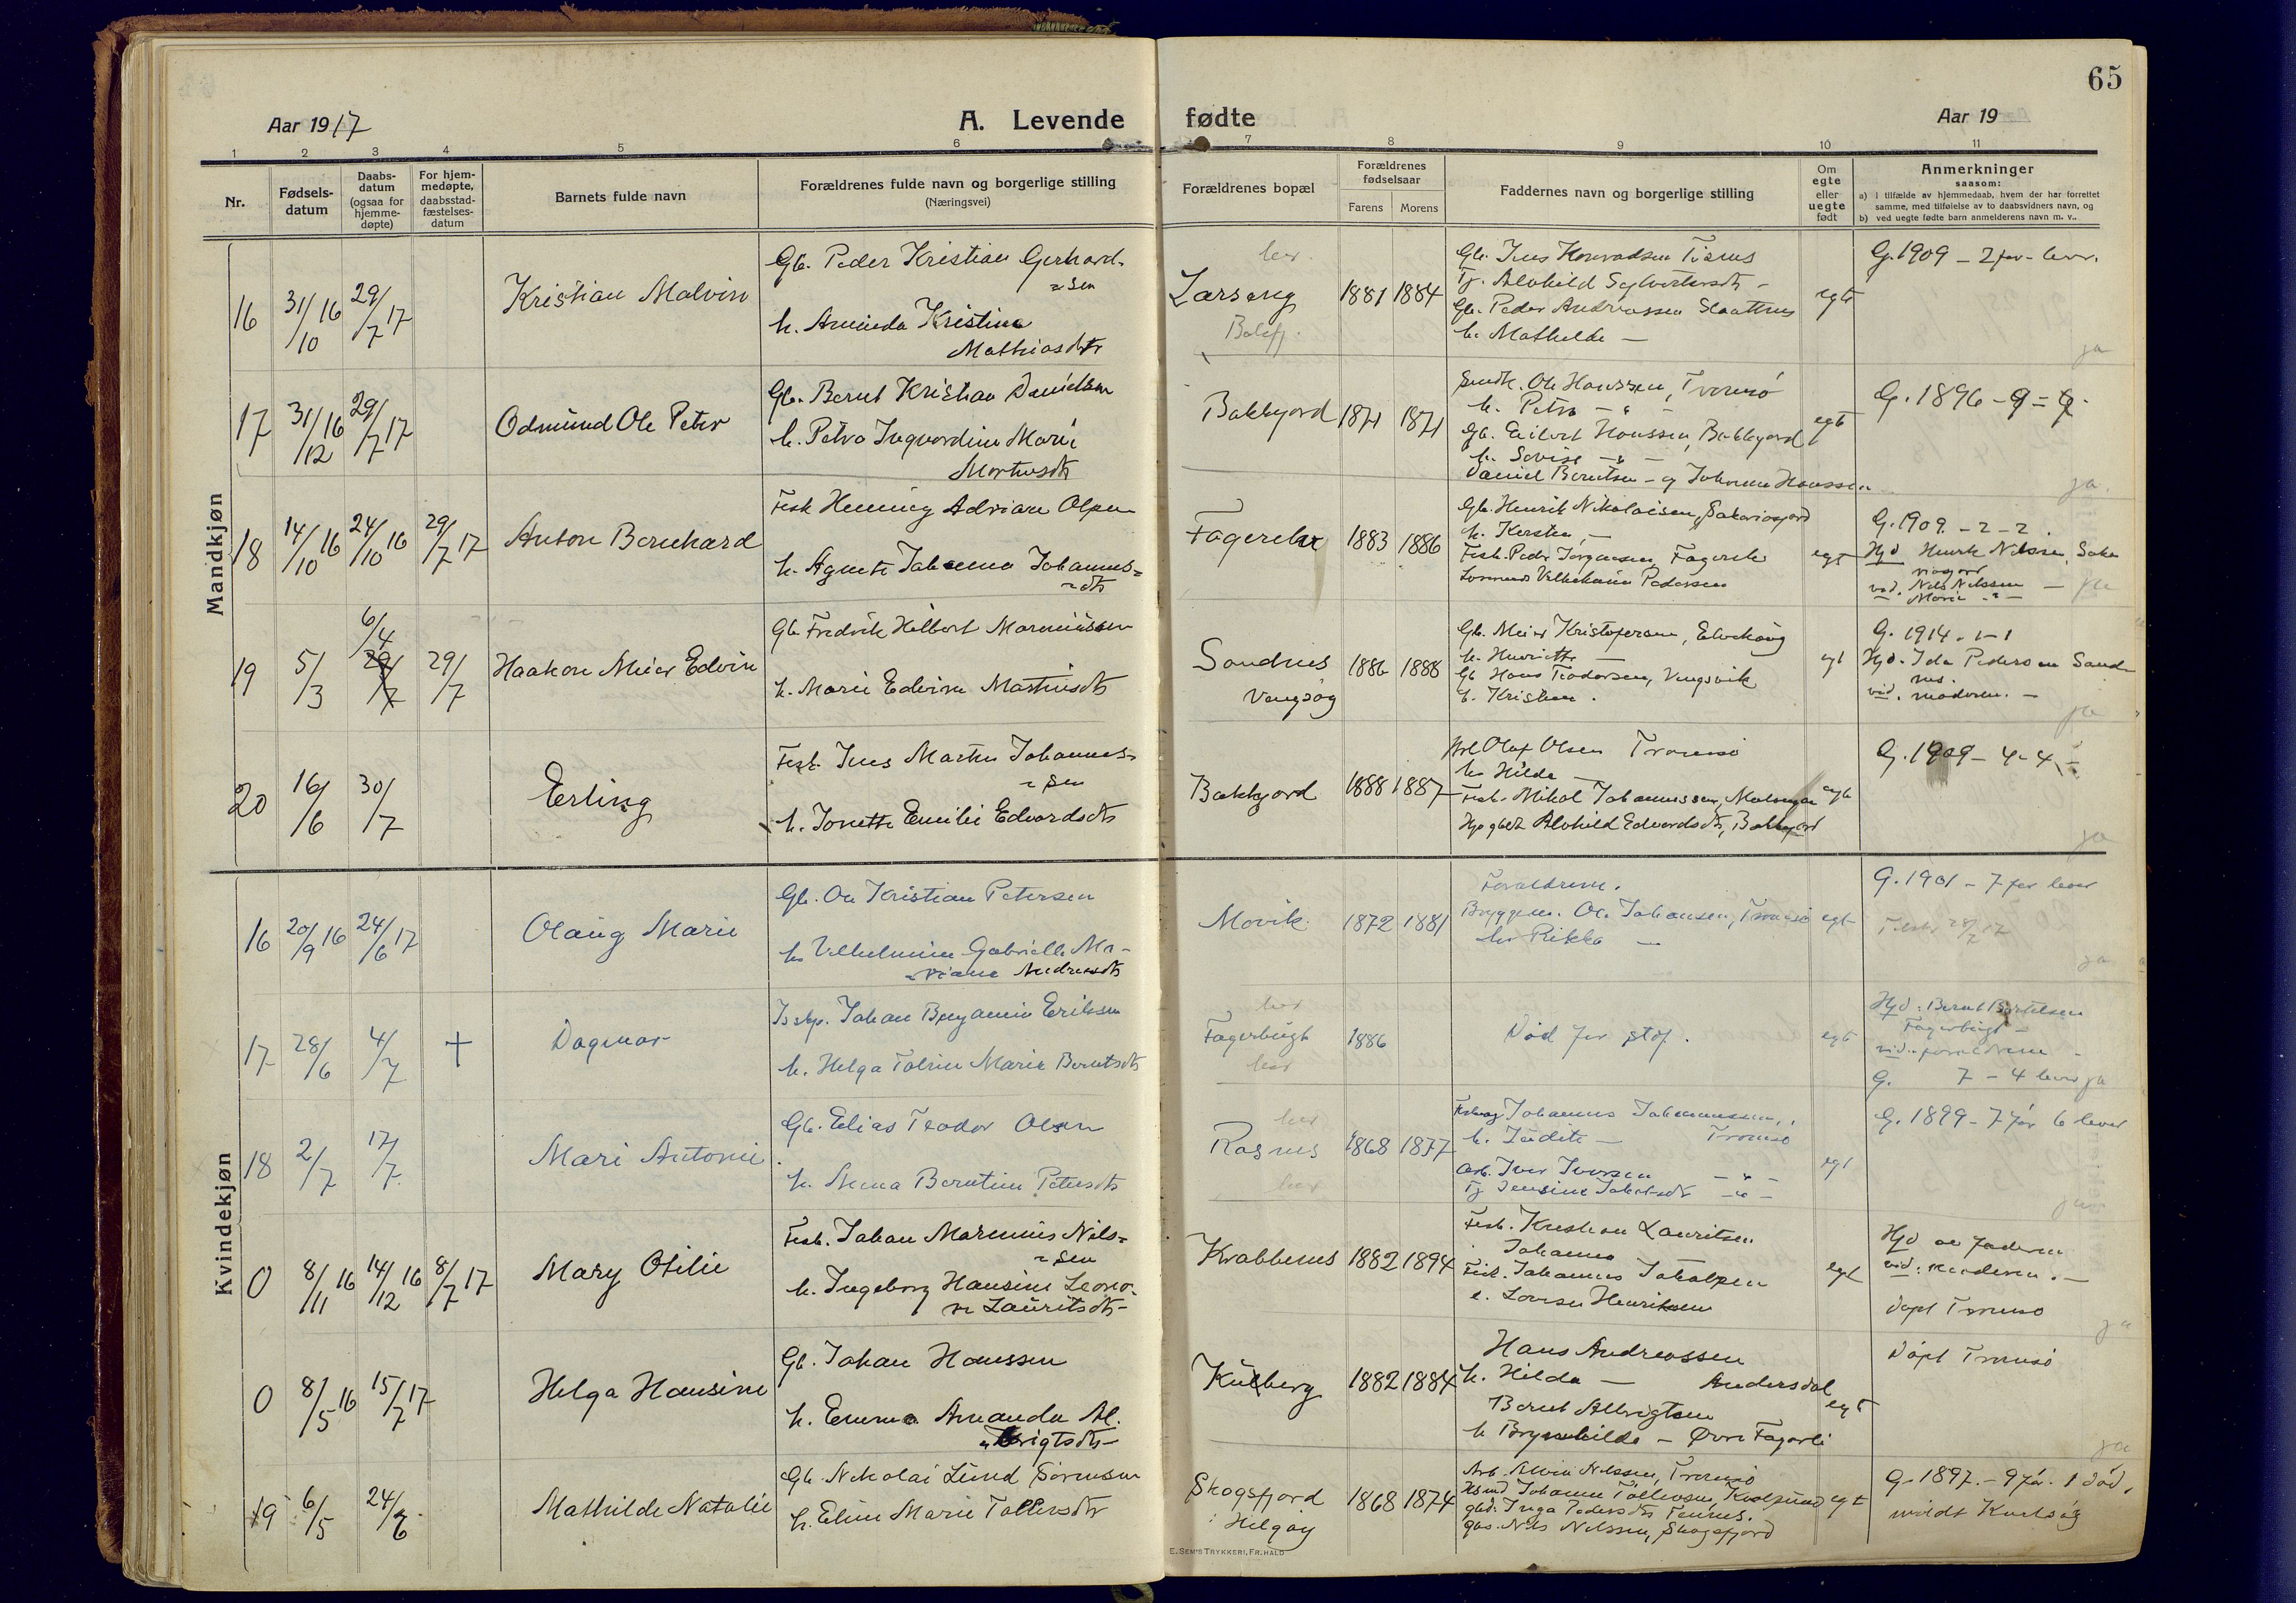 65
Aar 1917
A. Levende fødte
Aar 19
1 2 3 4 5 6 7 8 9 10 11
Nr.
Fødsels-
datum
Daabs-
datum
(ogsaa for
hjemme-
døpte)
For hjem-
medøpte,
daabsstad-
fæstelses-
datum
Barnets fulde navn
Forældrenes fulde navn og borgerlige stilling
(Næringsvei)
Forældrenes bopæl
Forældrenes
fødselsaar
Farens Morens
Faddernes navn og borgerlige stilling
Om
egte
eller
uegte
født
Anmerkninger
saasom:
a) i tilfælde av hjemmedaab, hvem der har forrettet
samme, med tilføielse av to daabsvidners navn, og
b) ved uegte fødte barn anmelderens navn m. v..
Mandkjøn
16 31/10 16 29/7 17 Kristian Malvin
Gb. Peder Kristian Gerhard-
sen
h. Kristine
Mathiasdtr
1881 1884
h. Mathilde —
egte
G. 1909 - 2 før - lever.
ja
17 31/12 16 29/7 17 Odmund Ole Peter
Gb. Bernt Kristian Danielsen
h. Petra Ingvardine Marie
Mortensdtr
Bakkejord 1871 1871
Ole Hanssen, Tromsø
h. Petra — " —
Gb. Eilert Hanssen, Bakkejord
Daniel Berntsen - og Johanne Hanssen
egte
G. 1896 - 9 =
ja.
18 14/10 16 24/10 16 29/7 17 Anton Bernhard
Fisk Henning Adrian Olsen
h. Agnete Johanna Johannes=
dtr
1883 1886
Gb. Henrik Nikolaisen,
h. Kersten, —
Fisk. Peder Jørgensen,
Vilhelmine Pedersen
egt
G. 1909. - 2 - 2.
Hjd Henrik Nilssen,
vid. Nils Nilssen —
Marie - " —
ja
19 5/3 6/4 29/7 29/7 Haakon Meier Edvin
Gb. Fredrik Hilbert Marenius­sen
h. Marie Edvine Mathisdtr
Sandnes
Vengsøy
1886 1888
Gb. Meier Kristofersen,
h. Henriette —
Gb Hans Teodorsen, Vengsvik
h. Kristine.
egt
G. 1914 - 1 - 1
Hjd. Ida Pedersen Sand-
nes.
vid. moderen. —
ja
20 16/6 30/7 Erling
Fisk. Jens Martin Johannes-
sen
h. Jonette Emilie Edvardsdtr
Bakkejord 1888 1887
Olaf Olsen Tromsø
h. Hilda —
Fisk. Mikal Johannessen,
Alvhild Edvardsdtr, Bakkejord
egte
G. 1909 - 4 - 4
ja
Kvindekjøn
16 20/9 16 24/6 17 Olaug Marie
Gb. Ole Kristian Petersen
h. Vilhelmine Gabrielle Ma-
riane Andreasdtr
Movik. 1872 1881
Forældrene.
Bryggem. Ole Johansen, Tromsø
h. Rikka —
egt
G. 1901 - 7 før lever
28/7 17
ja
17 28/6 4/7 † Dagmar
Johan Benjamin Eriksen
h. Helga Marie Berntsdtr
her
Fagerbugt 1886
her
Død før stdf.
egt
Hjd: Bernt Bertelsen
Fagerbugt —
vid. forældrene —
G. 7 - 4 lever ja
18 2/7 17/7 Mari Antonie
Gb. Elias Teodor Olsen
h. Anna Berntine Petersdtr
her
Rasnes 1868 1877
her
Johannes Johannessen,
h. Judite — Tromsø
Arb. Iver Iversen — " —
Tj Jensine Jakobsdtr — " —
egt
G. 1899 - 7 før 6 lever
ja
0 8/11 16 14/12 16 8/7 17 Mary Otilie
Fisk. Johan Marenius Nils=
sen
h. Ingeborg Hansine Leono-
re Lauritsdtr-
Krabbenes 1882 1894
Fisk. Kristian Lauritsen
Johanna —
Fisk. Johannes Jakobsen
e. Lovise Henriksen
egt
Hjd av faderen
vid: moderen. —
Døpt Tromsø
ja
0 8/5 16 15/7 17 Helga Hansine
Gb. Johan Hanssen
h. Emma Amanda Al-
brigtsdtr-
Kulberg 1882 1884
Hans Andreassen
h. Hilda — Andersdal
Bernt Albrigtsen
h Brynhilda — Øvre Fagerli
egt
Døpt Tromsø
ja
19 6/5 24/6 Mathilde Natalie
Gb. Nikolai Lund Sørensen
h. Eline Marie Tollefsdtr
Skogsfjord
i Helgøy
1868 1874
Arb. Alvin Nilssen, Tromsø
Johanne Tollevsen,
Inga Pedersdtr
Nils Nilssen, Skogsfjord
egt
G. 1897. - 9 før. 1 død.
meldt Karlsøy
E. SEM'S TRYKKERI, FR.HALD